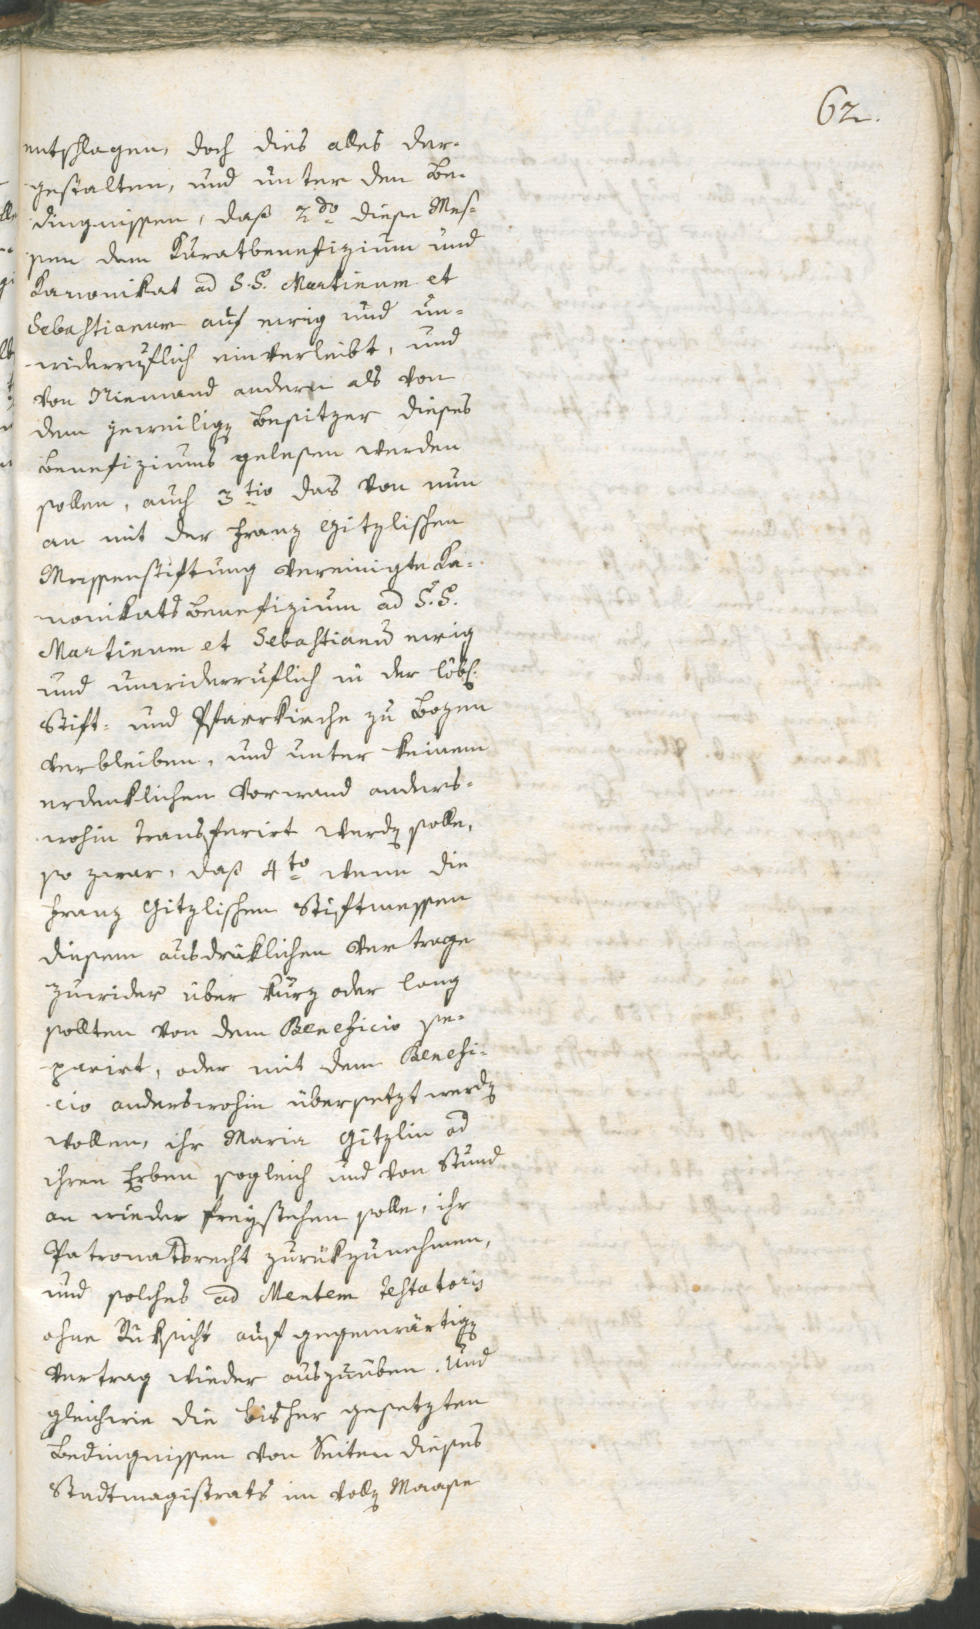 62.
entschlagen, doch dies alles der-
gestalten, und unter den Be-
dingnissen, daß 2do diese Mes-
sen dem Kuratbenefizium und
Kanonikat ad S. S. Martinum et
Sebastianum auf ewig und un-
widerruflich einverleibt, und
von Niemand andern als von
dem jeweilig Besitzer dieses
Benefiziums gelesen werden
sollen, auch 3tio das von nun
an mit der Franz Gitzlischen
Messenstiftung vereinigte Ka-
nonikats Benefizium ad S. S.
Martinum et Sebastianū ewig
und unwiderruflich in der löbl.
Stift- und Pfarrkirche zu Bozen
verbleiben, und unter keinem
erdenklichen Vorwand anders-
wohin transferirt werdn solle,
so zwar, daß 4to wenn die
Franz Gitzlischen Stiftmessen
diesem ausdrüklichen Vertrage
zuwider über kurz oder lang
sollten von dem Beneficio se-
parirt, oder mit dem Benefi-
cio anderswohin übersetzt werdn
wollen, ihr Maria Gitzlin od
ihren Erben sogleich und von Stund
an wieder freystehen solle, ihr
Patronatsrecht zurükzunehmen,
und solches ad Mentem testatoris
ohne Rüksicht auf gegenwärtign
Vertrag wieder auszuüben. Und
gleichwie die bisher gesetzten
Bedingnissen von Seiten dieses
Stadtmagistrats im volln Maase